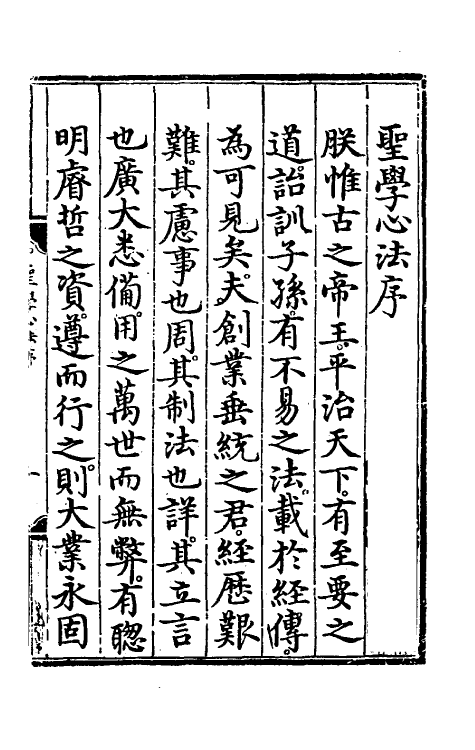 聖學心法序
朕惟古之帝王。平治天下。有至要之
道。詒訓子孫。有不易之法。載於經傳。
為可見矣。夫創業垂統之君。經歷艱
難。其慮事也周。其制法也詳。其立言
也廣大悉備。用之萬世而無弊。有聦
明睿哲之資。遵而行之。則大業永固
聖學心法序
一